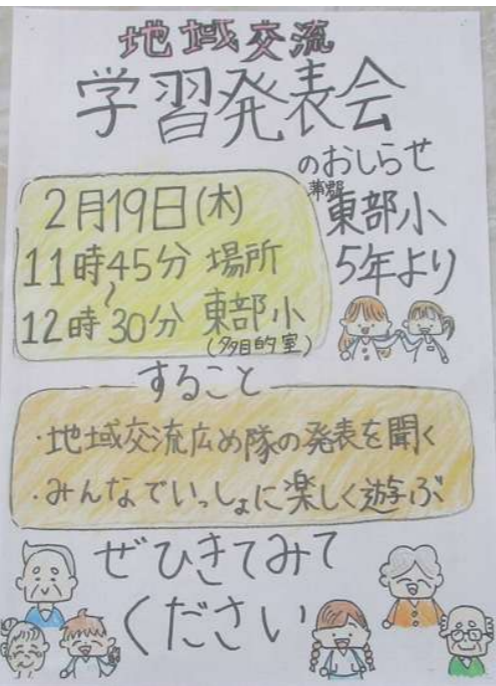 地域交流
学習発表会
のおしらせ
蒲郡
東部小
5年より
2月19日(木)
11時45分
〜
12時30分
場所
東部小
(多目的室)
すること
・地域交流広め隊の発表を聞く
・みんなでいっしょに楽しく遊ぶ
ぜひきてみて
ください